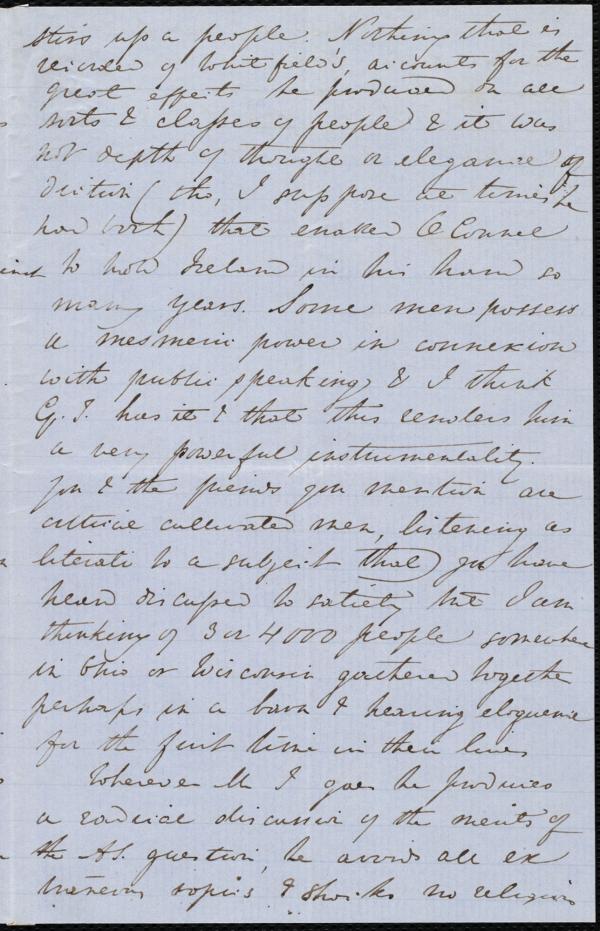 stirs up a people. Nothing that is
recorded of Whitfield's, accounts for the
great effects he produced on all
sorts & classes of people & it was
not depth of thought or elegance of
diction (tho, I suppose at times he
had both) that enabled O'Connel
to hold Ireland in his hand so
many years. Some men possess
a mesmeric power in connexion
with public speaking, & I think
G. T. has it & that this renders him
a very powerful instrumentality.
You & the friends you mention are
critical cultivated men, listening as
literati to a subject that you have
heard discussed to satiety but I am
thinking of 3 or 4000 people somewhere
in Ohio or Wisconsin gathered together
perhaps in a barn & hearing eloquence
for the first time in their lives
Wherever Mr T goes he produces
a radical discussion of the merits of
the AS. question, he avoids all ex
traneous topics & shocks no religious